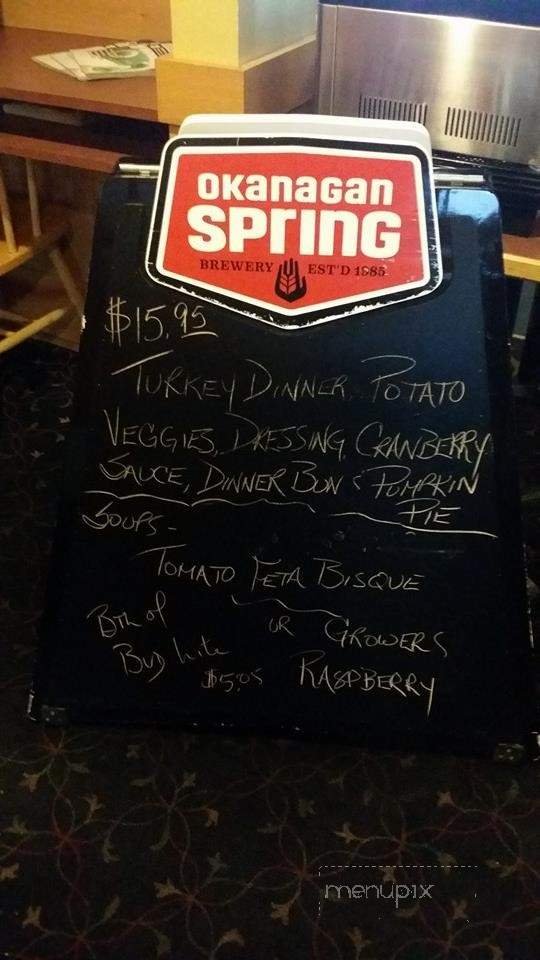 Okanagan
spring
BREWERY EST'D 1985
$15.95
TURKEY DINNER, POTATO
VEGGIES, DRESSING, CRANBERRY
SAUCE, DINNER BUN & PUMPKIN
PIE
SOUPS-
TOMATO FETA BISQUE
BTL of
Bud Lite
$5.05
OR GROWERS
RASPBERRY
menupix